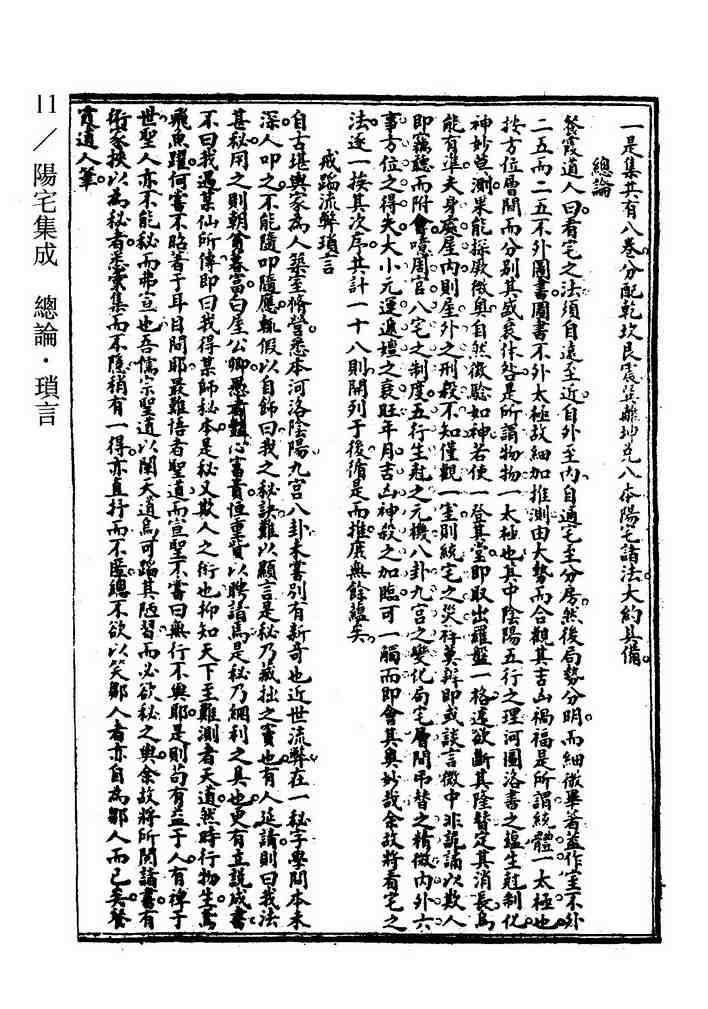 一是集共有八卷分配乾坎艮震巽離坤兌八本陽宅諸法大約具備
總論
餐霞道人曰看宅之法須自遠至近自外至內自通宅至分房然後局勢分明而細微畢著蓋作室不外
二五而二五不外圖書圖書不外太極故細加推測由大勢而合觀其吉凶禍福是所謂統體一太極也
按方位層間而分別其盛衰休咎是所謂物物一太極也其中陰陽五行之理河圖洛書之蘊生尅制化
神妙莫測果能探厥微奧自然徵驗如神若使一登其堂即取出羅盤一格遽欲斷其隆替定其消長烏
能有準夫身處屋內則屋外之刑殺不知僅觀一室則統宅之災祥莫辨即或談言微中非詭譎以欺人
即竊聽而附會噫周官八宅之制度五行生尅之元機八卦九宮之變化局宅層間吊替之精微內外六
事方位之得失大小元運遞嬗之衰旺年月吉凶神殺之加臨可一觸而即會其奧妙哉余故將看宅之
法逐一挨其次序共計一十八則開列于後循是而推庶無餘蘊矣
戒蹈流弊瑣言
自古堪輿家為人築室脩營悉本河洛陰陽九宮八卦未嘗別有新奇也近世流弊在一秘字學問本未
深人叩之不能隨叩隨應輒假以自飾曰我之秘訣難以顯言是秘乃藏拙之竇也有人延請則曰我法
甚秘用之則朝貧暮富白屋公卿愚者艷心富貴恒重貲以聘請焉是秘乃網利之具也更有立說成書
不曰我遇某仙所傳即曰我得某師秘本是秘又欺人之術也抑知天下至難測者天道然時行物生鳶
飛魚躍何嘗不昭著于耳目間耶最難語者聖道而宣聖不嘗曰無行不與耶是則苟有益于人有裨于
世聖人亦不能秘而弗宣也吾儒宗聖道以闡天道烏可蹈其陋習而必欲秘之與余故將所閱諸書有
術家挾以為秘者悉彙集而不隱稍有一得亦直抒而不匿總不欲以笑鄒人者亦自為鄒人而已矣餐
霞道人筆
11／陽宅集成　總論・瑣言